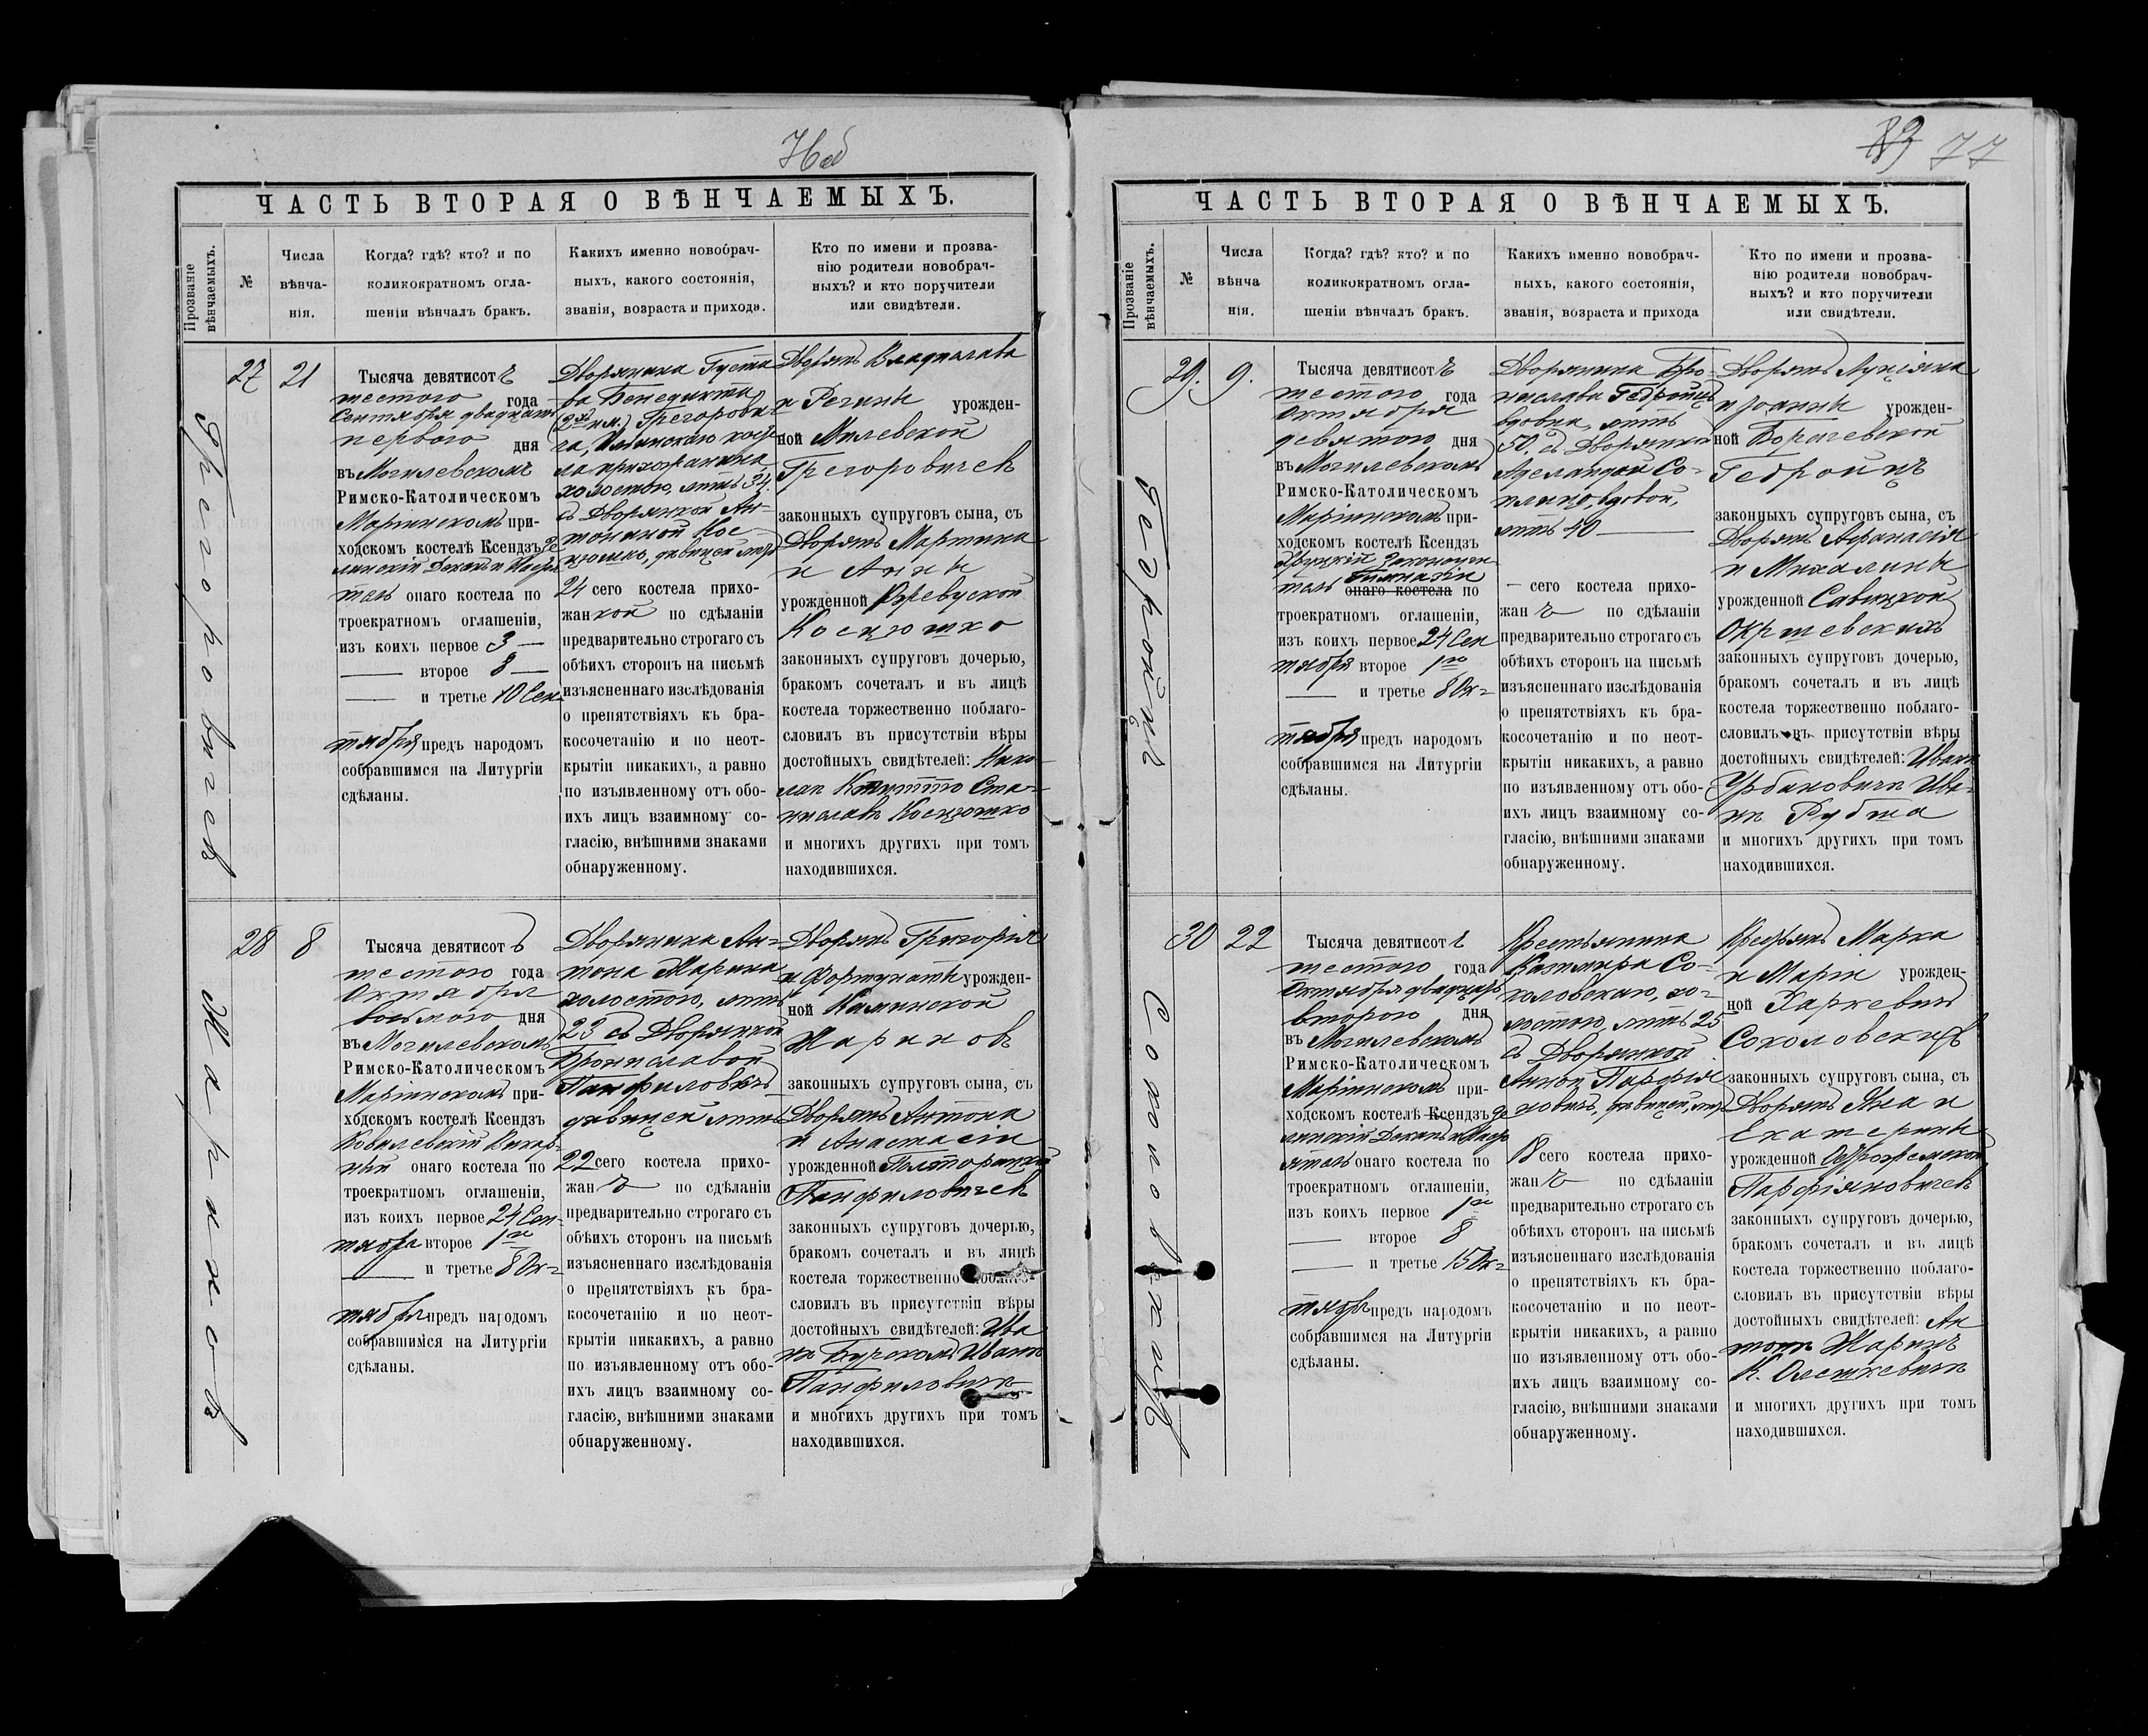 76об
ЧАСТЬ ВТОРАЯ О ВѢНЧАЕМЫХЪ.
Прозваніе
вѣнчаемыхъ.
№
Числа
вѣнча-
нія.
Когда? гдѣ? кто? и по
коликократномъ огла-
шеніи вѣнчалъ бракъ.
Какихъ именно новобрач-
ныхъ, какого состоянія,
званія, возраста и прихода.
Кто по имени и прозва-
нію родители новобрач-
ныхъ? и кто поручители
или свидѣтели.
Грегоровичъ
27
21
Тысяча девятисотъ
шестого года
Сентября двадцать
перваго дня
въ Могилевскомъ
Римско-Католическомъ
Маріинскомъ при-
ходскомъ костелѣ Ксендзъ Зе
линскій Деканъ и Настоя
тель онаго костела по
троекратномъ оглашеніи,
изъ коихъ первое 3 —
— второе 8 —
— и третье 10 Сен-
тября предъ народомъ
собравшимся на Литургіи
сдѣланы.
Дворянина Густа
ва Бенедикта
(2хъ им.) Грегорови
ча, косте
ла прихожанина,
холостаго, лѣтъ 34.
съ Дворянкой Ан-
тониной Кос-
цюшко, дѣвицей лѣтъ
24 сего костела прихо-
жанкой по сдѣланіи
предварительно строгаго съ
обѣихъ сторонъ на письмѣ
изъясненнаго изслѣдованія
о препятствіяхъ къ бра-
косочетанію и по неот-
крытіи никакихъ, а равно
по изъявленному отъ обо-
ихъ лицъ взаимному со-
гласію, внѣшними знаками
обнаруженному.
Дворянъ Владислава
и Регины урожден-
ной Милевской
Грегоровичей
законныхъ супруговъ сына, съ
Дворянъ Мартина
и Анны
урожденной Ржевуской
Косцюшко
законныхъ супруговъ дочерью,
бракомъ сочеталъ и въ лицѣ
костела торжественно поблаго-
словилъ въ присутствіи вѣры
достойныхъ свидѣтелей: Нико-
лая Ста-
нислава Косцюшко
и многихъ другихъ при томъ
находившихся.
Жариновъ
28
8
Тысяча девятисотъ
шестого года
Октября
восьмого дня
въ Могилевскомъ
Римско-Католическомъ
Маріинскомъ при-
ходскомъ костелѣ Ксендзъ
Ковалевскій Викар-
ный онаго костела по
троекратномъ оглашеніи,
изъ коихъ первое 24 Сен-
тября второе 1го
— и третье 8 Ок-
тября предъ народомъ
собравшимся на Литургіи
сдѣланы.
Дворянина Ан-
тона Жарина
холостого, лѣтъ
23 съ Дворянкой
Брониславой
Панфиловичъ
дѣвицей лѣтъ
22 сего костела прихо-
жанъ по сдѣланіи
предварительно строгаго съ
обѣихъ сторонъ на письмѣ
изъясненнаго изслѣдованія
о препятствіяхъ къ бра-
косочетанію и по неот-
крытіи никакихъ, а равно
по изъявленному отъ обо-
ихъ лицъ взаимному со-
гласію, внѣшними знаками
обнаруженному.
Дворянъ Григорія
и Фортунаты урожден-
ной Каминской
Жариновъ
законныхъ супруговъ сына, съ
Дворянъ Антона
и Анастасіи
урожденной Полторацкой
Панфиловичей
законныхъ супруговъ дочерью,
бракомъ сочеталъ и въ лицѣ
костела торжественно поблаго-
словилъ въ присутствіи вѣры
достойныхъ свидѣтелей: Ива
на Ивана
Панфиловича
и многихъ другихъ при томъ
находившихся.
77
ЧАСТЬ ВТОРАЯ О ВѢНЧАЕМЫХЪ.
Прозваніе
вѣнчаемыхъ.
№
Числа
вѣнча
нія.
Когда? гдѣ? кто? и по
коликократномъ огла-
шеніи вѣнчалъ бракъ.
Какихъ именно новобрач-
ныхъ, какого состоянія,
званія, возраста и прихода
Кто по имени и прозва-
нію родители новобрач-
ныхъ? и кто поручители
или свидѣтели.
Гедройцъ
29.
9.
Тысяча девятисотъ
шестого года
Октября
девятого дня
въ Могилевскомъ
Римско-Католическомъ
Маріинскомъ при-
ходскомъ костелѣ Ксендзъ
Законоучи
тель Гимназіи
онаго костела по
троекратномъ оглашеніи,
изъ коихъ первое 24 Сен
тября второе 1го
— и третье 8 Ок-
тября предъ народомъ
собравшимся на Литургіи
сдѣланы.
Дворянина Бро-
нислава Гедройцъ
вдовца, лѣтъ
50, съ Дворянкой
Аделаидой Со-
вдовой,
лѣтъ 40 —
— сего костела прихо-
жанъ по сдѣланіи
предварительно строгаго съ
обѣихъ сторонъ на письмѣ
изъясненнаго изслѣдованія
о препятствіяхъ къ бра-
косочетанію и по неот-
крытіи никакихъ, а равно
по изъявленному отъ обо-
ихъ лицъ взаимному со-
гласію, внѣшними знаками
обнаруженному.
Дворянъ Луціяна
и Іоанны урожден-
ной
Гедройцъ
законныхъ супруговъ сына, съ
Дворянъ Афанасія
и Михалины
урожденной Савицкой
Окршевскихъ
законныхъ супруговъ дочерью,
бракомъ сочеталъ и въ лицѣ
костела торжественно поблаго-
словилъ въ присутствіи вѣры
достойныхъ свидѣтелей: Ивана
Урбановича Ива-
на Рубша
и многихъ другихъ при томъ
находившихся.
Соколовскій
30
22
Тысяча девятисотъ
шестого года
Октября двадцать
второго дня
въ Могилевскомъ
Римско-Католическомъ
Маріинскомъ при-
ходскомъ костелѣ Ксендзъ Зе
линскій Деканъ и Насто
ятель онаго костела по
троекратномъ оглашеніи,
изъ коихъ первое 1го
— второе 8
— и третье 15 Ок-
тября предъ народомъ
собравшимся на Литургіи
сдѣланы.
Крестьянина
Казимира Со-
коловскаго, хо-
лостого, лѣтъ 25
съ Дворянкой
Анной Парфія
новичъ, дѣвицей, лѣтъ
18 сего костела прихо-
жанъ по сдѣланіи
предварительно строгаго съ
обѣихъ сторонъ на письмѣ
изъясненнаго изслѣдованія
о препятствіяхъ къ бра-
косочетанію и по неот-
крытіи никакихъ, а равно
по изъявленному отъ обо-
ихъ лицъ взаимному со-
гласію, внѣшними знаками
обнаруженному.
Крестьянъ Марка
и Маріи урожден-
ной Харкевичъ
Соколовскихъ
законныхъ супруговъ сына, съ
Дворянъ Яна и
Екатерины
урожденной
Парфіяновичей
законныхъ супруговъ дочерью,
бракомъ сочеталъ и въ лицѣ
костела торжественно поблаго-
словилъ въ присутствіи вѣры
достойныхъ свидѣтелей: Ан
тона Жаринъ
К. Олешкевича
и многихъ другихъ при томъ
находившихся.